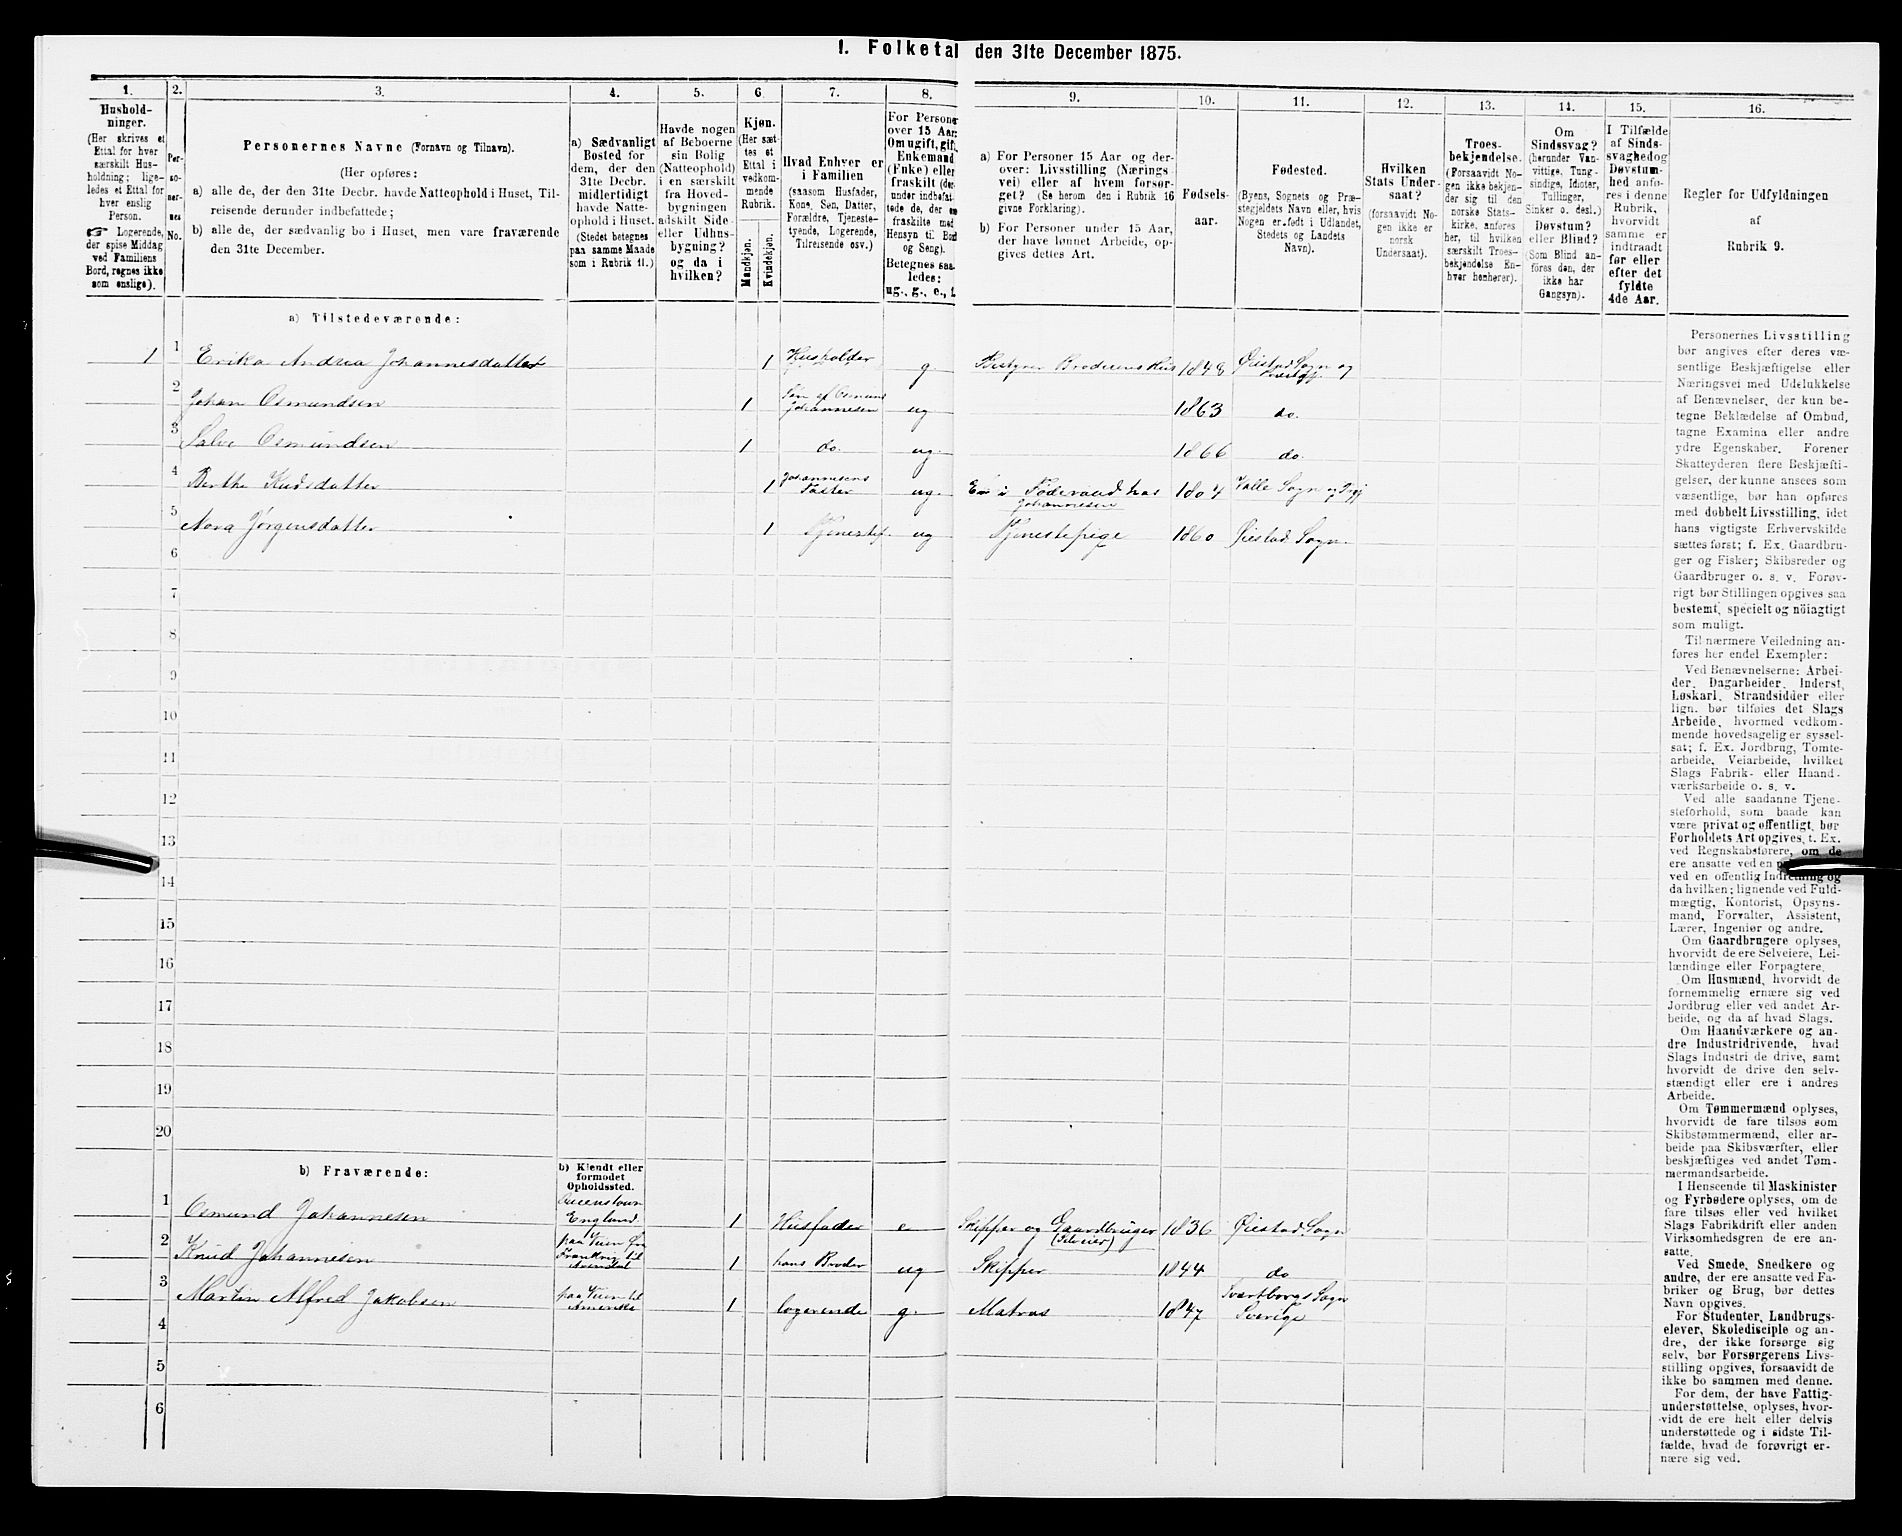 1. Folketal den 31te December 1875.
1. 2. 3. 4. 5. 6. 7. 8. 9. 10. 11. 12. 13. 14. 15. 16.
Hushold-
ninger.
(Her skrives et
Ettal for hver
særskilt Hus-
holdning; lige-
ledes et Ettal for
hver enslig
Person.
☞ Logerende,
der spise Middag
ved Familiens
Bord, regnes ikke
som enslige).
Per-
so-
ner-
nes
No.
Personernes Navne (Fornavn og Tilnavn).
(Her opføres:
a) alle de, der den 31te Decbr. havde Natteophold i Huset, Til-
reisende derunder indbefattede;
b) alle de, der sædvanlig bo i Huset, men vare fraværende
den 31te December.
a) Sædvanligt
Bosted for
dem, der den
31te Decbr.
midlertidigt
havde Natte-
ophold i Huset.
(Stedet betegnes
paa samme Maade
som i Rubrik 11.)
Havde nogen
af Beboerne
sin Bolig
(Natteophold)
i en særskilt
fra Hoved-
bygningen
adskilt Side-
eller Udhus-
bygning?
og da i
hvilken?
Kjøn.
(Her sæt-
tes et
Ettal i
vedkom-
mende
Rubrik.
Mandkjøn.
Kvindekjøn.
Hvad Enhver er
i Familien
(saasom Husfader,
Kone, Søn, Datter,
Forældre, Tjeneste-
tyende, Logerende,
Tilreisende osv.)
For Persone
over 15 Aar:
Om ugift, gift
Enkemand
(Enke) eller
fraskilt (der-
under indbefat-
tede de, der
fraskilte med
Hensyn til Bord
og Seng).
Betegnes saa-
ledes:
ug., g., e., f.
a) For Personer 15 Aar og der-
over: Livsstilling (Nærings-
vei) eller af hvem forsør-
get? (Se herom den i Rubrik 16
givne Forklaring).
b) For Personer under 15 Aar,
der have lønnet Arbeide, op-
gives dettes Art.
Fødsels-
aar.
Fødested.
(Byens, Sognets og Præ-
stegjeldets Navn eller, hvis
Nogen er født i Udlandet,
Stedets og Landets
Navn).
Hvilken
Stats Under-
saat?
(forsaavidt No-
gen ikke er
norsk
Undersaat).
Troes-
bekjendelse.
(Forsaavidt No-
gen ikke bekjen-
der sig til den
norske Stats-
kirke, anføres
her, til hvilken
særskilt Troes-
bekjendelse En-
hver henhører).
Om
Sindssvag?
(herunder Van-
vittige, Tung-
sindige, Idioter,
Tullinger,
Sinker o. desl.)
Døvstum?
eller Blind?
(Som Blind an-
føres den, der
ikke har
Gangsyn).
I Tilfælde
af Sinds-
svaghed og
Døvstum-
hed anfø-
res i denne
Rubrik,
hvorvidt
samme er
indtraadt
før eller
efter det
fyldte
4de Aar.
Regler for Udfyldningen
af
Rubrik 9.
a) Tilstedeværende:
1 1 Erika Andrea Johannesdatter 1 Husholder g Bestyrer Broderens Hus 1848 Øiestad Sogn og
2 Johan Osmundsen 1 Søn af Osmund
Johannesen ug 1863 do.
3 Salve Osmundsen 1 do. ug. 1866 do.
4 Berthe Knudsdatter 1 Johannesens
Faster ug. Er i Føderaad hos
Johannesen Valle Sogn og
5 Nora Jørgensdatter 1 ug Tjenestepige 1860 Øiestad Sogn.
6
7
8
9
10
11
12
13
14
15
16
17
18
19
20
b) Fraværende:
b) Kjendt eller
formodet
Opholdssted.
1 Osmund Johannesen Queenstown
England 1 Husfader e Skipper og Gaardbruger
(Selveier) 1836 Øiestad Sogn
2 Knud Johannesen paa Veien fra
Frankrig til
Arendal 1 hans Broder ug Skipper 1844 do
3 Martin Alfred Jakobsen paa Veien til
Amerika 1 logerende g. Matros 1847 Svartborgs Sogn
Sverige
4
5
6
Personernes Livsstilling
bør angives efter deres væ-
sentlige Beskjæftigelse eller
Næringsvei med Udelukkelse
af Benævnelser, der kun be-
tegne Beklædelse af Ombud,
tagne Examina eller andre
ydre Egenskaber. Forener
Skatteyderen flere Beskjæfti-
gelser, der kunne ansees som
væsentlige, bør han opføres
med dobbelt Livsstilling, idet
hans vigtigste Erhvervskilde
sættes først; f. Ex. Gaardbru-
ger og Fisker; Skibsreder og
Gaardbruger o. s. v. Forøv-
rigt bør Stillingen opgives saa
bestemt, specielt og nöiagtigt
som muligt.
Til nærmere Veiledning an-
føres her endel Exempler:
Ved Benævnelserne: Arbei-
der, Dagarbeider, Inderst,
Løskarl, Strandsidder eller
lign. bør tilføies det Slags
Arbeide, hvormed vedkom-
mende hovedsagelig er syssel-
sat; f. Ex. Jordbrug, Tomte-
arbeide, Veiarbeide, hvilket
Slags Fabrik- eller Haand-
værksarbeide o. s. v.
Ved alle saadanne Tjene-
steforhold, som baade kan
være privat og offentligt, bør
Forholdets Art opgives, t. Ex.
ved Regnskabsførere, om de
ere ansatte ved en
ved en offentlig Indretning og
da hvilken; lignende ved Fuld-
mægtig, Kontorist, Opsyns-
mand, Forvalter, Assistent,
Lærer, Ingeniør og andre.
Om Gaardbrugere oplyses,
hvorvidt de ere Selveiere, Lei-
lændinge eller Forpagtere.
Om Husmænd, hvorvidt de
fornemmelig ernære sig ved
Jordbrug eller ved andet Ar-
beide, og da af hvad Slags.
Om Haandværkere og an-
dre Industridrivende, hvad
Slags Industri de drive, samt
hvorvidt de drive den selv-
stændigt eller ere i andres
Arbeide.
Om Tømmermænd oplyses,
hvorvidt de fare tilsøs som
Skibstømmermænd, eller ar-
beide paa Skibsværfter, eller
beskjæftiges ved andet Tøm-
mermandsarbeide.
I Henseende til Maskinister
og Fyrbødere oplyses, om de
fare tilsøs eller ved hvilket
Slags Fabrikdrift eller anden
Virksomhedsgren de ere an-
satte.
Ved Smede, Snedkere og
andre, der ere ansatte ved Fa-
briker og Brug, bør dettes
Navn opgives.
For Studenter, Landbrugs-
elever, Skoledisciple og an-
dre, der ikke forsørge sig
selv, bør Forsørgerens Livs-
stilling opgives, forsaavidt de
ikke bo sammen med denne.
For dem, der have Fattig-
understøttelse, oplyses, hvor-
vidt de ere helt eller delvis
understøttede og i sidste Til-
fælde, hvad de forøvrigt er-
nære sig ved.